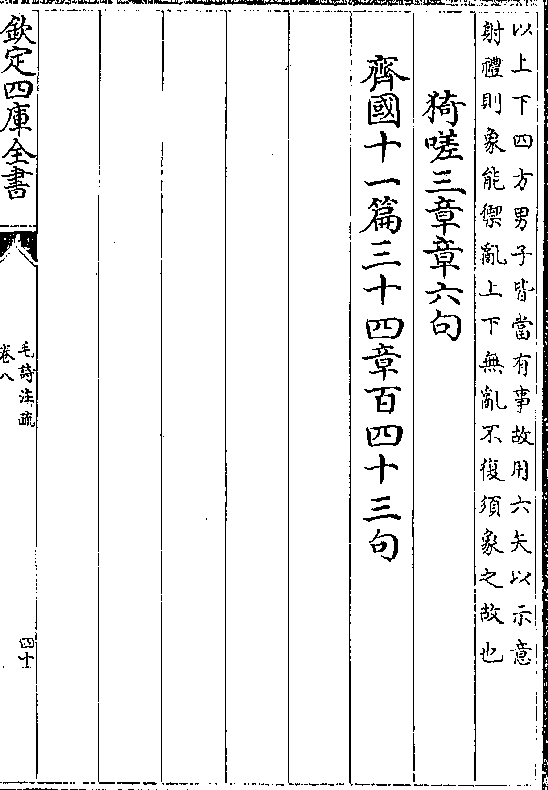 以上下四方男子皆當有事故用六矢以示意
射禮則象能禦亂上下無亂不復須象之故也
猗嗟三章章六句
齊國十一篇三十四章百四十三句
欽定四庫全書
毛詩注疏
卷八
四十